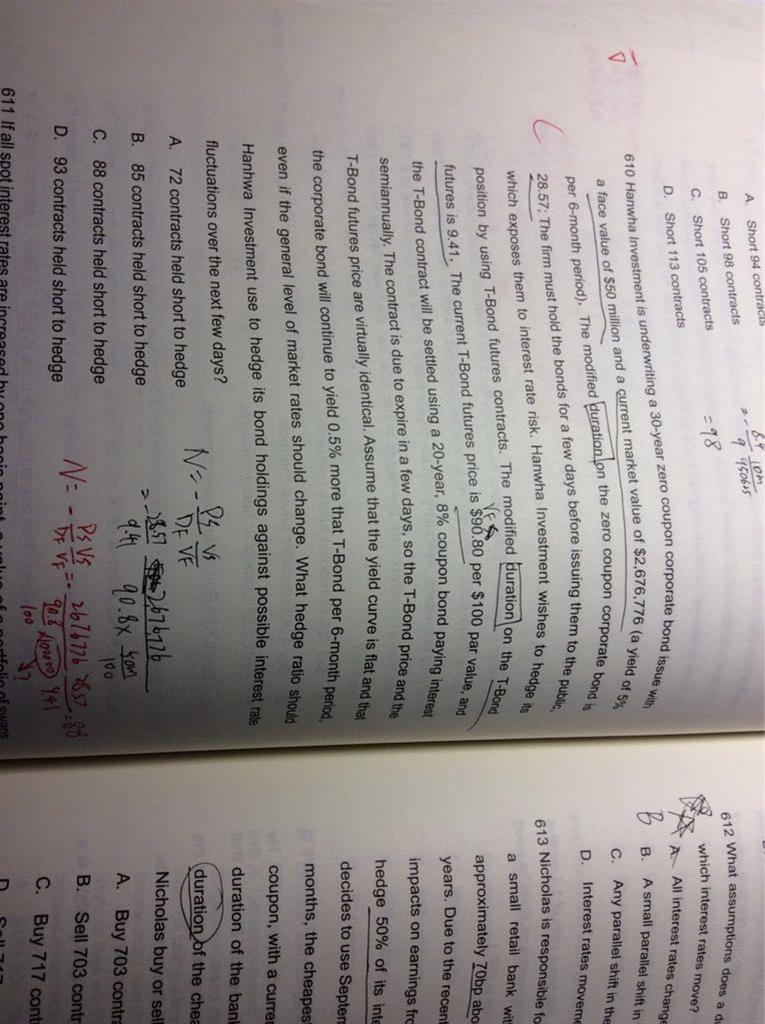 A. Short 94 contracts
B. Short 98 contracts
C. Short 105 contracts
D. Short 113 contracts
= 98
610 Hanwha Investment is underwriting a 30-year zero coupon corporate bond issue with
a face value of $50 million and a current market value of $2,676,776 (a yield of 5%
per 6-month period). The modified duration on the zero coupon corporate bond is
28.57. The firm must hold the bonds for a few days before issuing them to the public,
which exposes them to interest rate risk. Hanwha Investment wishes to hedge its
position by using T-Bond futures contracts. The modified duration on the T-Bond
futures is 9.41. The current T-Bond futures price is $90.80 per $100 par value, and
the T-Bond contract will be settled using a 20-year, 8% coupon bond paying interest
semiannually. The contract is due to expire in a few days, so the T-Bond price and the
T-Bond futures price are virtually identical. Assume that the yield curve is flat and that
the corporate bond will continue to yield 0.5% more that T-Bond per 6-month period,
even if the general level of market rates should change. What hedge ratio should
Hanhwa Investment use to hedge its bond holdings against possible interest rate
fluctuations over the next few days?
A. 72 contracts held short to hedge
B. 85 contracts held short to hedge
C. 88 contracts held short to hedge
D. 93 contracts held short to hedge
C
VF
N = - Ds Vs
DF VF
= - 28.57 2,676,776
9.41 90.8 ×
100
N = - Ds Vs = - 2676776 28.57 = 88
DF VF 90.8 9.41
100
611 If all spot interest rates are increased by one basis point, a value of a portfolio of swaps
612 What assumptions does a
which interest rates move?
A. All interest rates change
B. A small parallel shift in
C. Any parallel shift in the
D. Interest rates
B
613 Nicholas is responsible
a small retail bank
approximately 70bp
years. Due to the recent
impacts on earnings
hedge 50% of its
decides to use
months, the
coupon, with a
duration of the
duration of the
Nicholas buy or sell
A. Buy 703
B. Sell 703
C. Buy 717
D. Sell 717